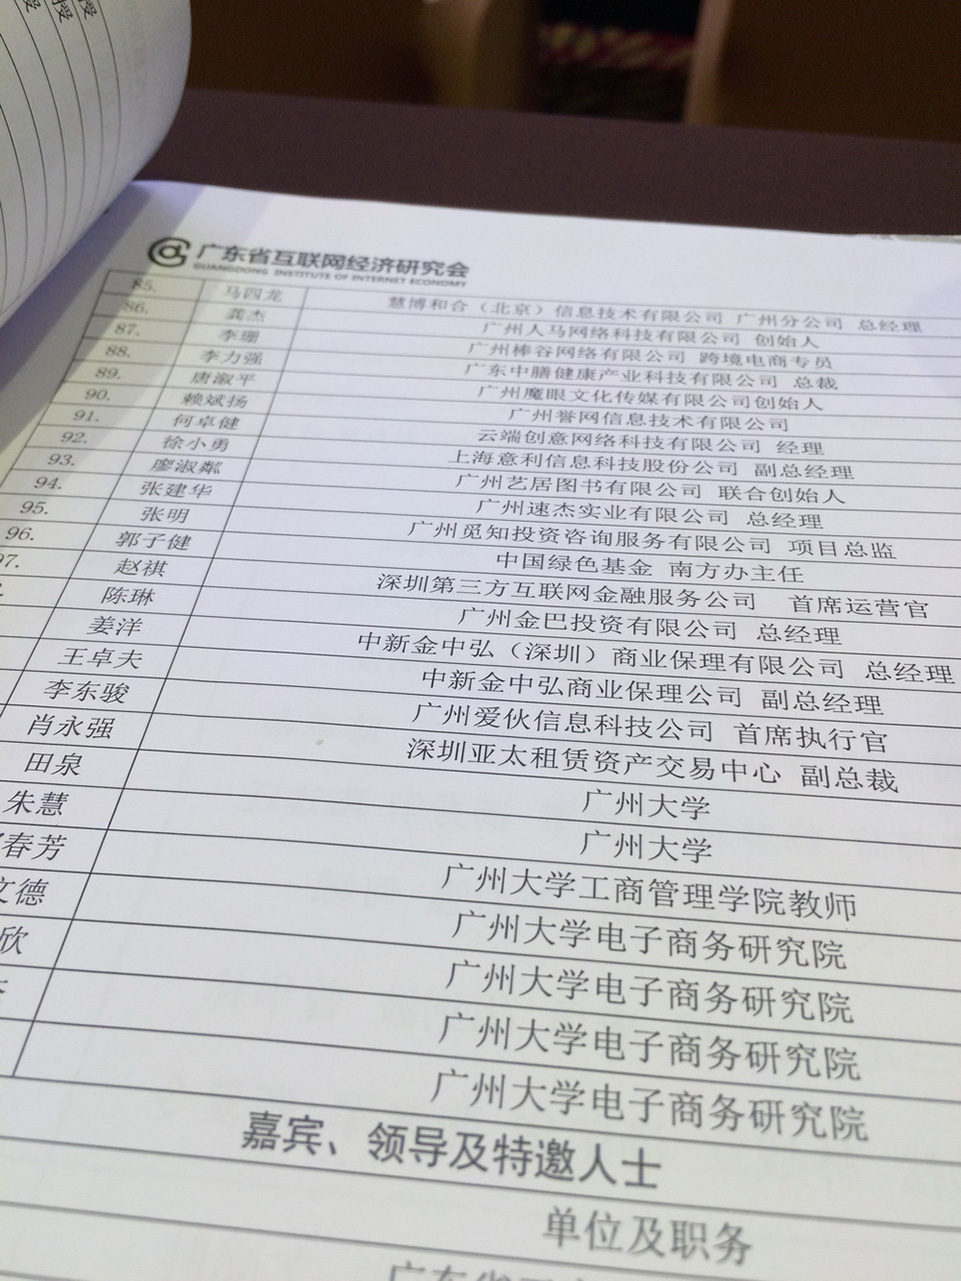 授
授
广东省互联网经济研究会
GUANGDONG INSTITUTE OF INTERNET ECONOMY
85. 马四龙 慧博和合（北京）信息技术有限公司 广州分公司 总经理
86. 龚杰 广州人马网络科技有限公司 创始人
87. 李珊 广州棒谷网络有限公司 跨境电商专员
88. 李力强 广东中膳健康产业科技有限公司 总裁
89. 唐淑平 广州魔眼文化传媒有限公司创始人
90. 赖斌扬 广州誉网信息技术有限公司
91. 何卓健 云端创意网络科技有限公司 经理
92. 徐小勇 上海意利信息科技股份公司 副总经理
93. 廖淑粼 广州艺居图书有限公司 联合创始人
94. 张建华 广州速杰实业有限公司 总经理
95. 张明 广州觅知投资咨询服务有限公司 项目总监
96. 郭子健 中国绿色基金 南方办主任
97. 赵祺 深圳第三方互联网金融服务公司 首席运营官
陈琳 广州金巴投资有限公司 总经理
姜洋 中新金中弘（深圳）商业保理有限公司 总经理
王卓夫 中新金中弘商业保理公司 副总经理
李东骏 广州爱伙信息科技公司 首席执行官
肖永强 深圳亚太租赁资产交易中心 副总裁
田泉 广州大学
朱慧 广州大学
春芳 广州大学工商管理学院教师
文德 广州大学电子商务研究院
欣 广州大学电子商务研究院
广州大学电子商务研究院
广州大学电子商务研究院
嘉宾、领导及特邀人士
单位及职务
广东省